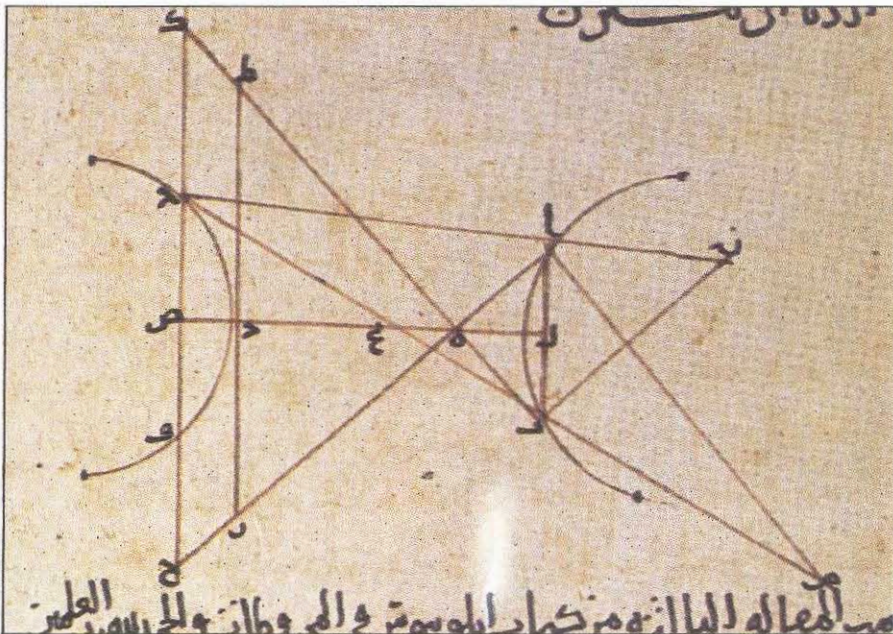 ك
ط
ا
ن
ص
د
ع
ه
ل
ف
ب
ر
ح
م
المقاله الثالثه من كتاب ابلونيوس في المخروطات والحمد لله رب العلمين